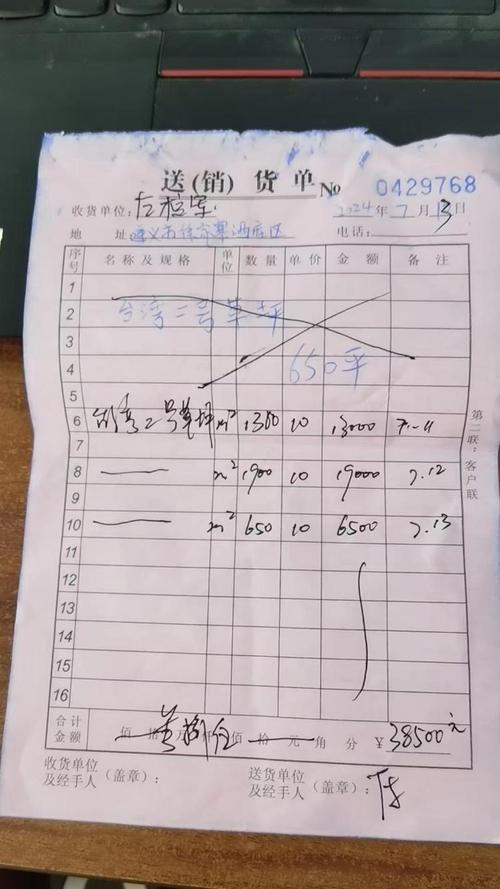 送(销)货单 № 0429768
收货单位: 2024年7月13日
地 址 遵义市 电话:
序号 名称及规格 单位 数量 单价 金额 备注
1
2 台湾二号草坪
3
4 650平
5
6 台湾二号草坪 m² 1300 10 13000 7-11
7
8 —— m² 1900 10 19000 7.12
9
10 —— m² 650 10 6500 7.13
11
12
13
14
15
16
合计金额 佰 拾 万 仟 佰 拾 元 角 分 ¥38500元
收货单位及经手人(盖章): 送货单位及经手人(盖章):
第二联:客户联